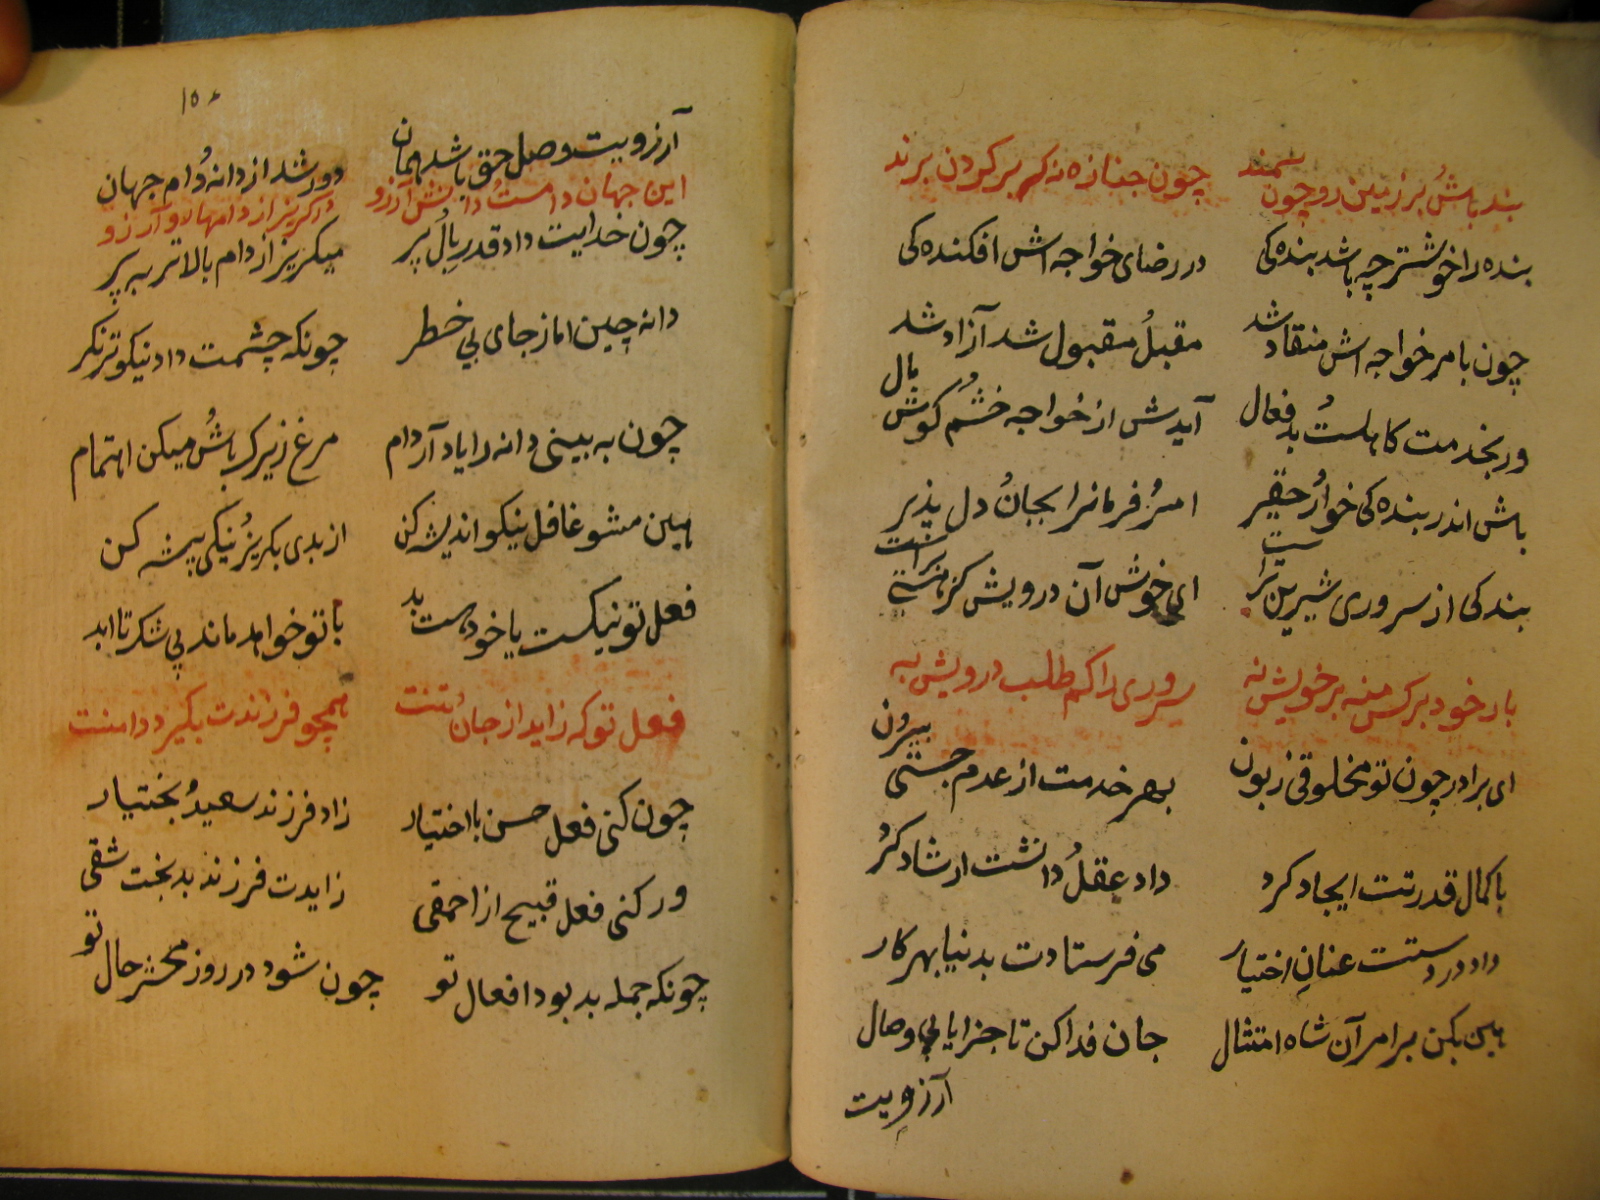 بنده باش و بر زمین رو چون سمند    چون جنازه نه که بر گردن برند
بنده را خوشتر چه باشد بندگی    در رضای خواجه اش افکندگی
چون بامر خواجه اش منقاد شد    مقبل و مقبول شد آزاد شد
ور بخدمت کاهلست و بد فعال    آیدش از خواجه خشم و گوش مال
باش اندر بندگی خوار و حقیر    امر و فرمانرا بجان و دل پذیر
بندگی از سروری شیرین تراست    ای خوش آن درویش کز
بار خود بر کس منه بر خویش نه    سروری را کم طلب درویش به
ای برادر چون تو مخلوقی زبون    بهر خدمت از عدم جستی بیرون
با کمال قدرتت ایجاد کرد    داد عقل و دانشت ارشاد کرد
داد در دستت عنان اختیار    می فرستادت بدنیا بهر کار
هین بکن بر امر آن شاه امتثال    جان فدا کن تا جزا یابی وصال
آرزویت
۱۵۶
آرزویت وصل حق باشد همان    دور شد از دانه و دام جهان
این جهان دامست و دانش آرزو    در گریز از دامهای و آرزو
چون خدایت داد قدر بال و پر    میگریز از دام بالاتر بپر
دانه چین اما ز جای بی خطر    چونکه چشمت داد نیکوتر نگر
چون به بینی دانه را یاد آر دام    مرغ زیرک باش و میکن اهتمام
هین مشو غافل نیکو اندیشه کن    از بدی بگریز و نیکی پیشه کن
فعل تو نیکست یا خودهست بد    با تو خواهد ماند بی شک تا ابد
فعل تو که زاید از جان و تنت    همچو فرزندت بگیرد دامنت
چون کنی فعل حسن با اختیار    زاد فرزند سعید و بختیار
ور کنی فعل قبیح از احمقی    زایدت فرزند بدبخت شقی
چونکه جمله بد بود افعال تو    چون شود در روز محشر حال تو